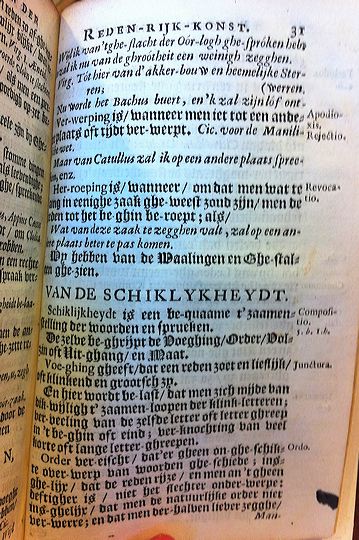 REDEN-RIJK-KONST. 31
Wijl ik van 'tghe-slacht der Oór-logh ghe-spróken heb,
zal ik nu van de ghrootheit een weinigh zegghen.
Virg. Tót hier van d'akker-bouw en heemelijke Ster-
ren; (werren,
Nu wordt het Bachus buert, en'k zal zijn lóf ont-
Ver-werping is/ wanneer men iet tot een ande-
plaats oft tijdt ver-werpt. Cic. voor de Manili-
wet.
Maar van Catullus zal ik op een andere plaats spree-
ken, enz.
Her-roeping is/ wanneer/ om dat men wat te
lang in eenighe zaak ghe-weest zoud zijn/ men de
reden tot het be-ghin be-roept; als/
Wat van deze zaak te zegghen valt, zal op een an-
dere plaats beter te pas komen.
Wy hebben van de Waalingen en Ghe-stal-
ten ghe-zien.
VAN DE SCHIKLYKHEYDT.
Schiklijkheydt is een be-quaame t'zaamen-
stelling der woorden en sprueken.
De zelve be-ghrijpt de Voeghing/ Order/ Vol-
zin oft Uit-ghang/ en Maat.
Voe-ghing gheeft/ dat een reden zoet en lieflijk/
oft klinkend en grootsch zy.
En hier wordt be-last/ dat men zich mijde van
dik-wijligh t'zaamen-loopen der klink-letteren;
ver-heeling van de zelfde letter oft letter ghreep
in 't be-ghin oft eind; ver-knoching van veel
korte oft lange letter-ghreepen.
Order ver-eischt/ dat'er gheen on-ghe-schik-
te over-werp van woorden ghe-schiede; ins-
ghe-lijx/ dat de reden rijze/ en van 't gheen
deftigher is/ niet het slechter onder-werpe:
ins-ghelijx/ dat men de natuurlijke order niet
ver-werre; en dat men der-halven liever zegghe/
Man-
Apodio-
xis,
Rejectio.
Revoca-
tio.
Compositio-
Junctura.
Ordo.